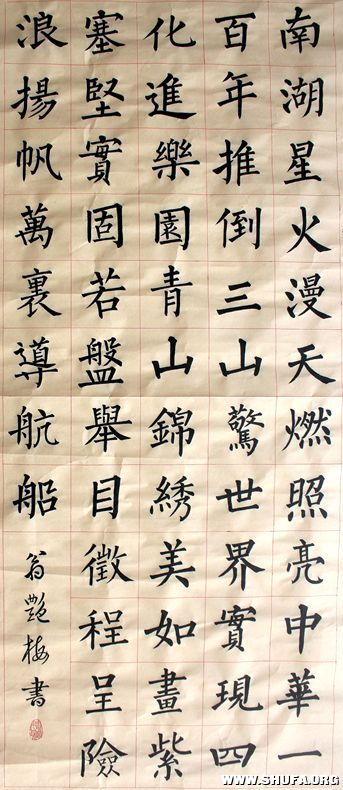 南湖星火漫天燃照亮中華一
百年推倒三山驚世界實現四
化進樂園青山錦綉美如畫紫
塞堅實固若盤舉目徵程呈險
浪揚帆萬裏導航船
翁艷梅書
WWW.SHUFA.ORG